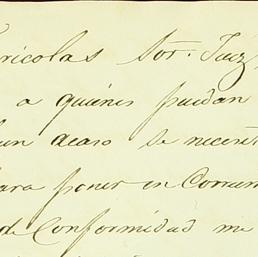 ricolas Sor. Juez
a quienes puedan
un acaso se necesit
para poner en Concur
de Conformidad me